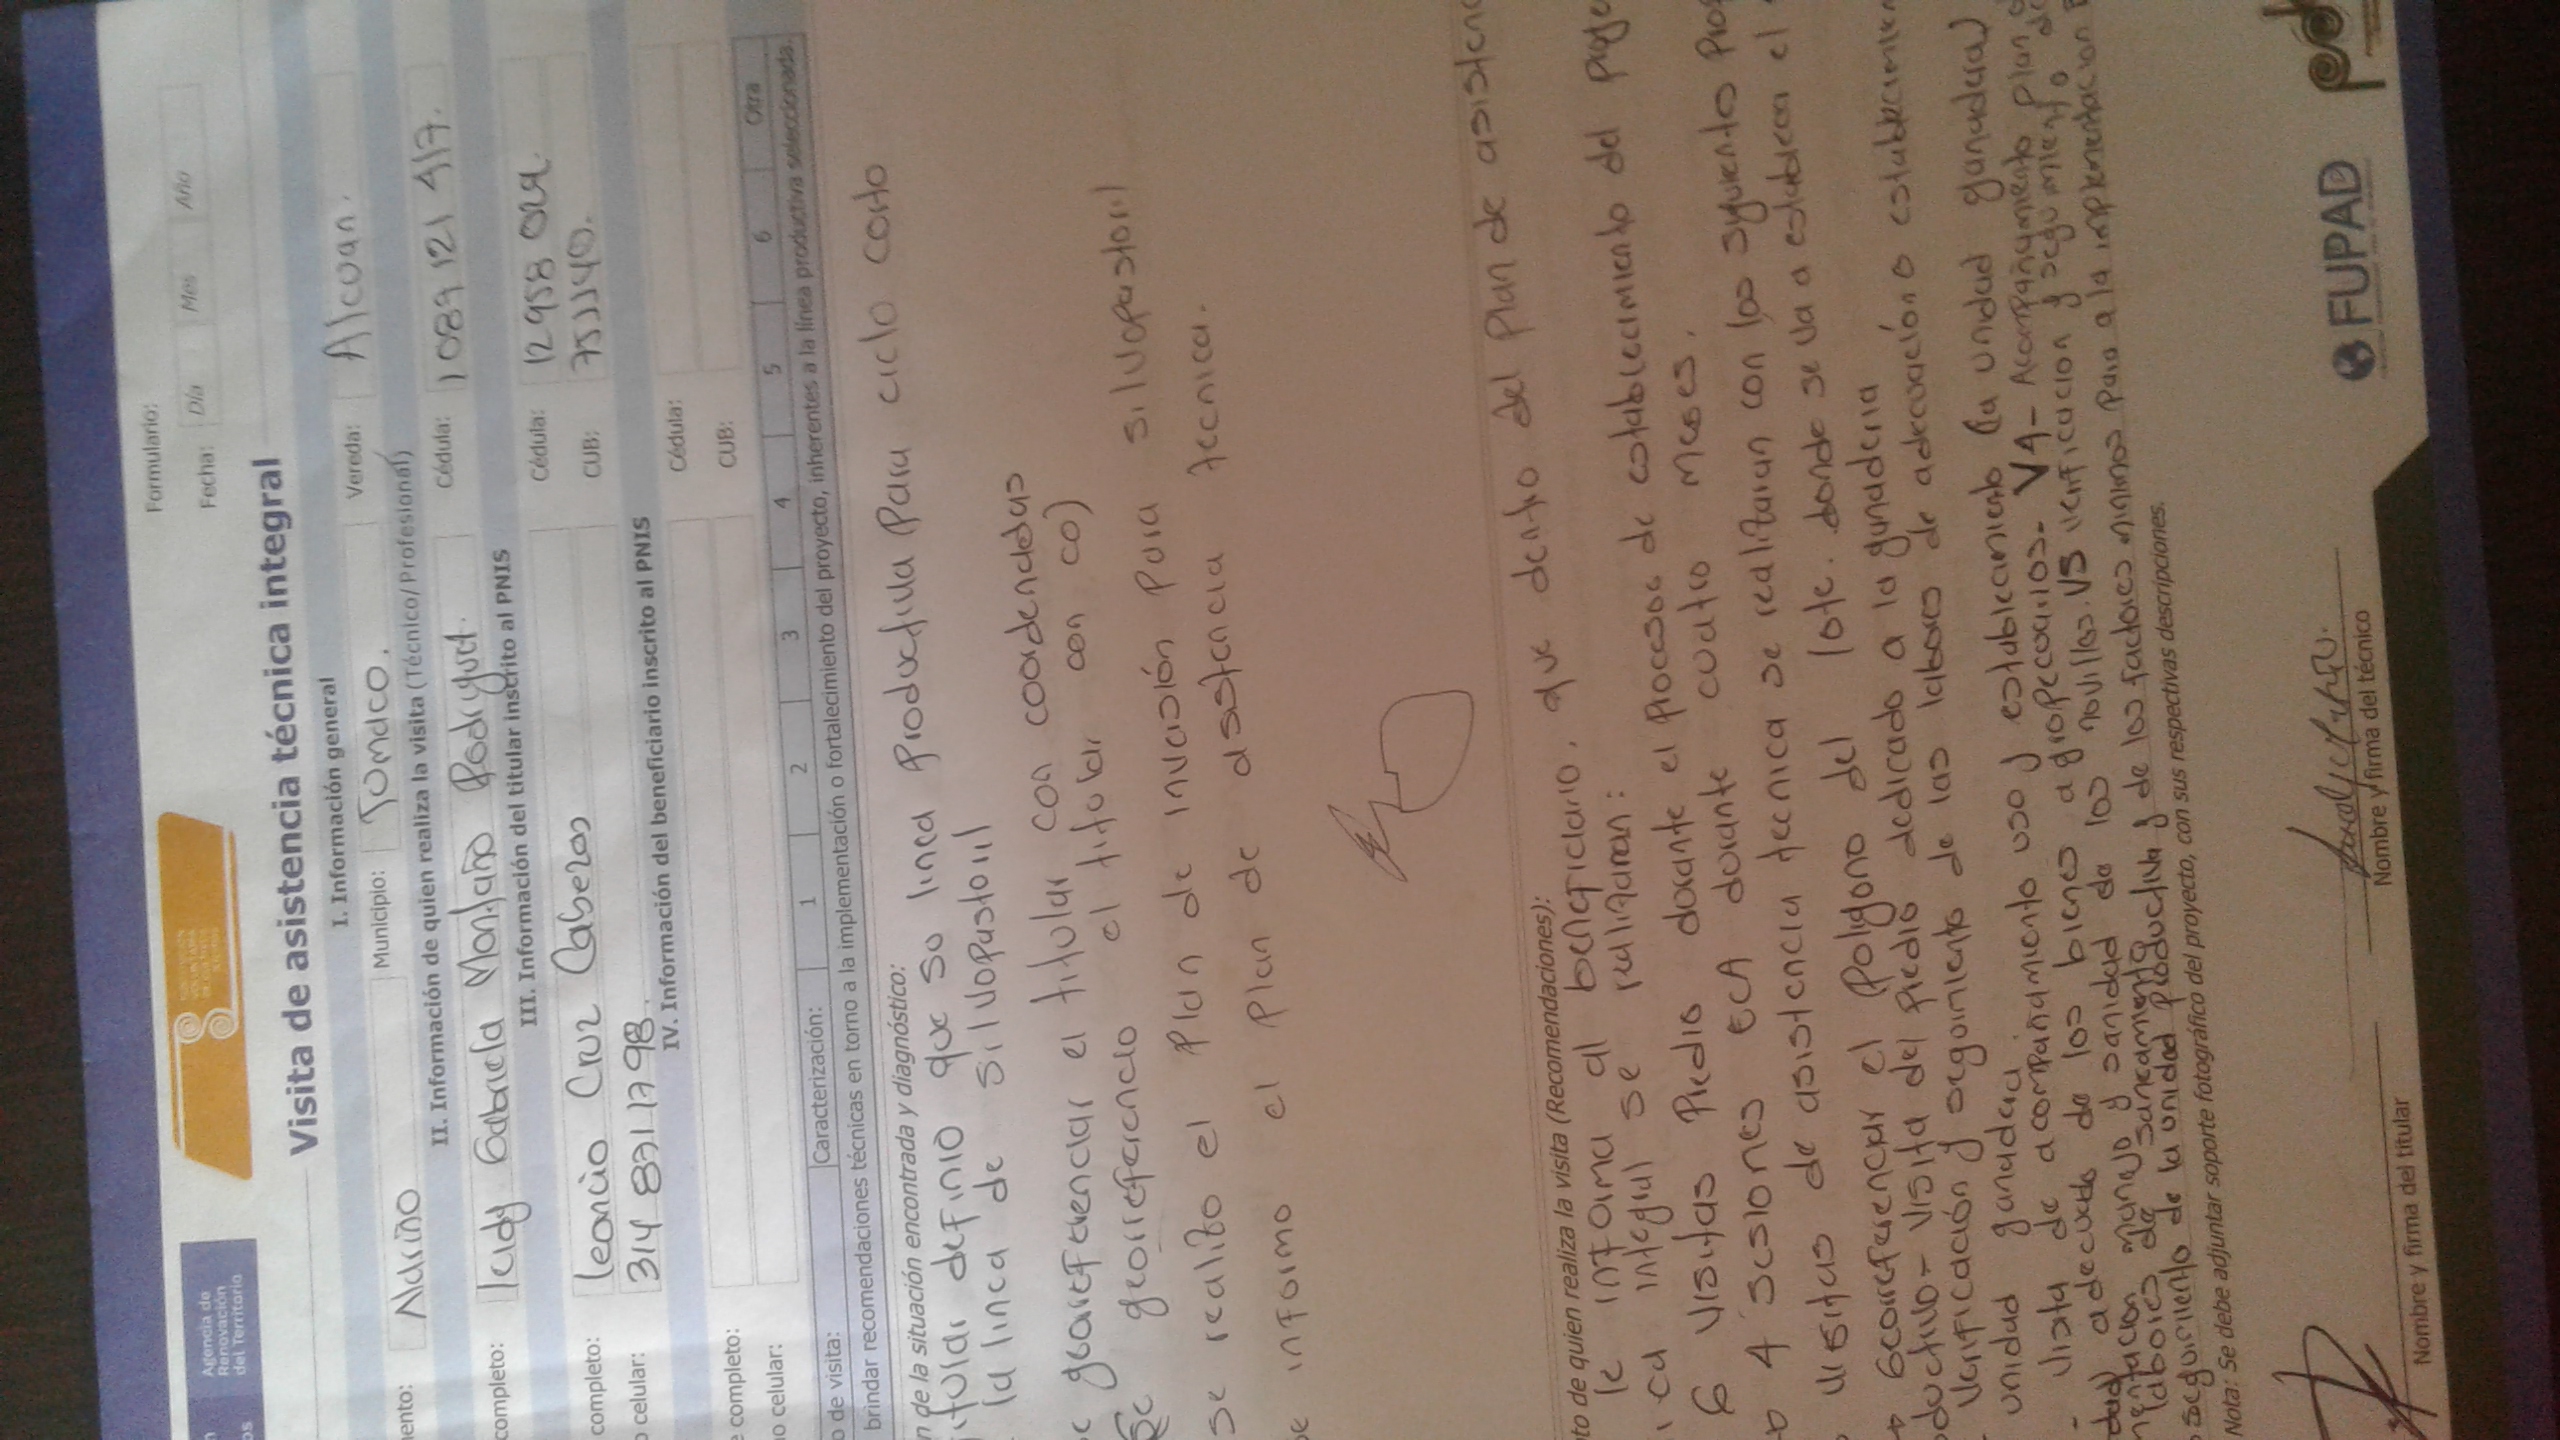 Agencia de
Renovación
del Territorio
Formulario:
Fecha: Día Mes Año
Visita de asistencia técnica integral
I. Información general
ento: Nariño Municipio: Tumaco. Vereda: Alcuan.
II. Información de quien realiza la visita (Técnico/Profesional)
completo: leidy Gabriela Montaño Rodriguez. Cédula: 1089 121 417.
III. Información del titular inscrito al PNIS
completo: leoncio Cruz Cabezas Cédula: 12958
celular: 314 8311798. CUB:
IV. Información del beneficiario inscrito al PNIS
e completo: Cédula:
o celular: CUB:
o de visita: Caracterización: 1 2 3 4 5 6 Otra
brindar recomendaciones técnicas en torno a la implementación o fortalecimiento del proyecto, inherentes a la línea productiva seleccionada.
n de la situación encontrada y diagnóstico:
titular definio que su linea Productiva Para ciclo corto
la linea de silvopastoril
e georeferenciar el titular con coordenadas
georreferencio el titular con co)
se realizo el Plan de inversión Para silvopastoril
se informo el Plan de asistencia tecnica.
to de quien realiza la visita (Recomendaciones):
le informa al beneficiario, que dentro del Plan de asistenc
ica integral se realizaran:
6 visitas Predio durante el Proceso de establecimiento del Proye
4 sesiones ECA durante cuatro meses.
visitas de asistencia tecnica se realizaran con los siguiento Prop
Georreferenciar el Poligono del lote donde se va a establecer el
ductivo - visita del Predio dedicado a la ganaderia
verificación y seguimiento de las labores de adecuación o establecimien
unidad ganadera
- visita de acompañamiento uso y establecimiento (la unidad ganadera)
adecuado de los bienes agropecuarios- V4- Acompañamiento Plan
manejo y sanidad de los novillas. V5 verificacion y seguimiento de
labores de saneamiento
seguimiento de la unidad productiva y de los factores minimos Para a la implementacion
Nota: Se debe adjuntar soporte fotográfico del proyecto, con sus respectivas descripciones.
Nombre y firma del titular
Nombre y firma del técnico
FUPAD